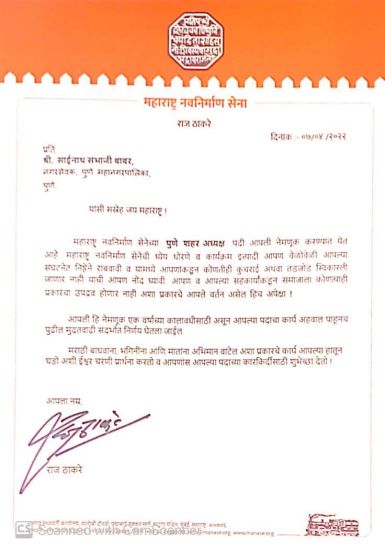 महाराष्ट्र नवनिर्माण सेना
राज ठाकरे
दिनांक :- ०७/०४ /२०२२
प्रति,
श्री. साईनाथ संभाजी बाबर,
नगरसेवक, पुणे महानगरपालिका,
पुणे
यांसी सस्नेह जय महाराष्ट्र !
महाराष्ट्र नवनिर्माण सेनेच्या पुणे शहर अध्यक्ष पदी आपली नेमणूक करण्यात येत
आहे महाराष्ट्र नवनिर्माण सेनेची ध्येय धोरणे व कार्यक्रम इत्यादी आपण वेळोवेळी आपल्या
संघटनेत निष्ठेने राबवावी व यामध्ये आपणांकडून कोणतीही कुचराई अथवा तडजोड स्विकारली
जाणार नाही याची आपण नोंद घ्यावी. आपण व आपल्या सहकार्यांकडून समाजाला कोणताही
प्रकारचा उपद्रव होणार नाही अशा प्रकारचे आपले वर्तन असेल हिच अपेक्षा !
आपली हि नेमणूक एक वर्षाच्या कालावधीसाठी असून आपल्या पदाचा कार्य अहवाल पाहूनच
पुढील मुदतवाढी संदर्भात निर्णय घेतला जाईल
मराठी बांधवांना, भगिनींना आणि मातांना अभिमान वाटेल अशा प्रकारचे कार्य आपल्या हातून
घडो अशी ईश्वर चरणी प्रार्थना करतो व आपणांस आपल्या पदाच्या कारकिर्दीसाठी शुभेच्छा देतो !
आपला नम्र,
राज ठाकरे
CS Scanned with CamScanner
www.manase.org